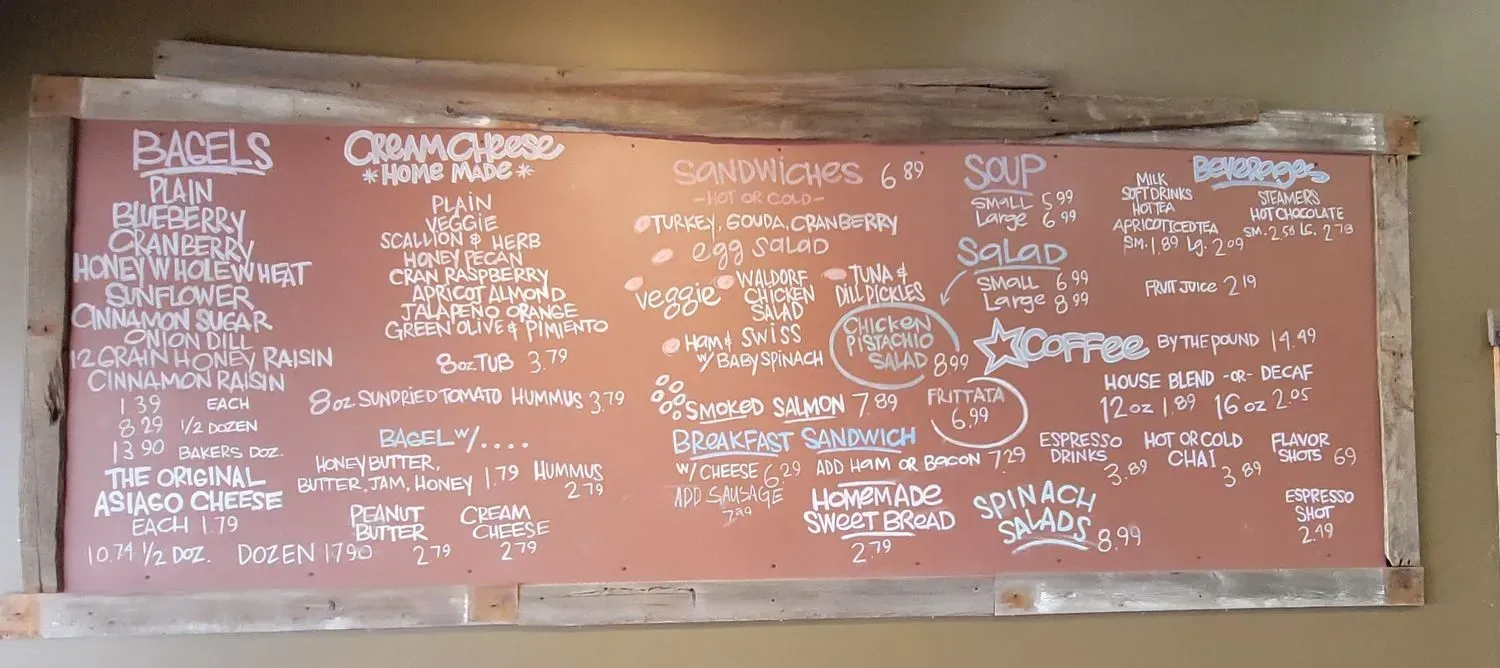 BAGELS
PLAIN
BLUEBERRY
CRANBERRY
HONEY WHOLE WHEAT
SUNFLOWER
CINNAMON SUGAR
ONION DILL
12 GRAIN HONEY RAISIN
CINNAMON RAISIN
1.39 EACH
8.29 1/2 DOZEN
13.90 BAKERS DOZ.
THE ORIGINAL
ASIAGO CHEESE
EACH 1.79
10.74 1/2 DOZ. DOZEN 17.90
CREAM CHEESE
*HOME MADE*
PLAIN
VEGGIE
SCALLION & HERB
HONEY PECAN
CRAN RASPBERRY
APRICOT ALMOND
JALAPEÑO ORANGE
GREEN OLIVE & PIMIENTO
8oz. TUB 3.79
8oz. SUNDRIED TOMATO HUMMUS 3.79
BAGEL W/....
HONEY BUTTER,
BUTTER, JAM, HONEY 1.79
HUMMUS
2.79
PEANUT
BUTTER
2.79
CREAM
CHEESE
2.79
SANDWICHES 6.89
-HOT OR COLD-
TURKEY, GOUDA, CRANBERRY
egg SALAD
veggie
WALDORF
CHICKEN
SALAD
TUNA &
DILL PICKLES
HAM & SWISS
W/ BABY SPINACH
CHICKEN
PISTACHIO
SALAD 8.99
SMOKED SALMON 7.89
FRITTATA
6.99
BREAKFAST SANDWICH
W/ CHEESE 6.29 ADD HAM OR BACON 7.29
ADD SAUSAGE
HOMEMADE
SWEET BREAD
2.79
SOUP
SMALL 5.99
Large 6.99
SALAD
SMALL 6.99
Large 8.99
SPINACH
SALADS 8.99
Beverages
MILK
SOFT DRINKS
HOT TEA
APRICOT ICED TEA
SM. 1.89 Lg. 2.09
STEAMERS
HOT CHOCOLATE
SM. 2.58 LG. 2.78
FRUIT JUICE 2.19
COFFEE BY THE POUND 14.49
HOUSE BLEND -OR- DECAF
12 oz 1.89 16 oz 2.05
ESPRESSO
DRINKS
3.89
HOT OR COLD
CHAI
3.89
FLAVOR
SHOTS 69
ESPRESSO
SHOT
2.49